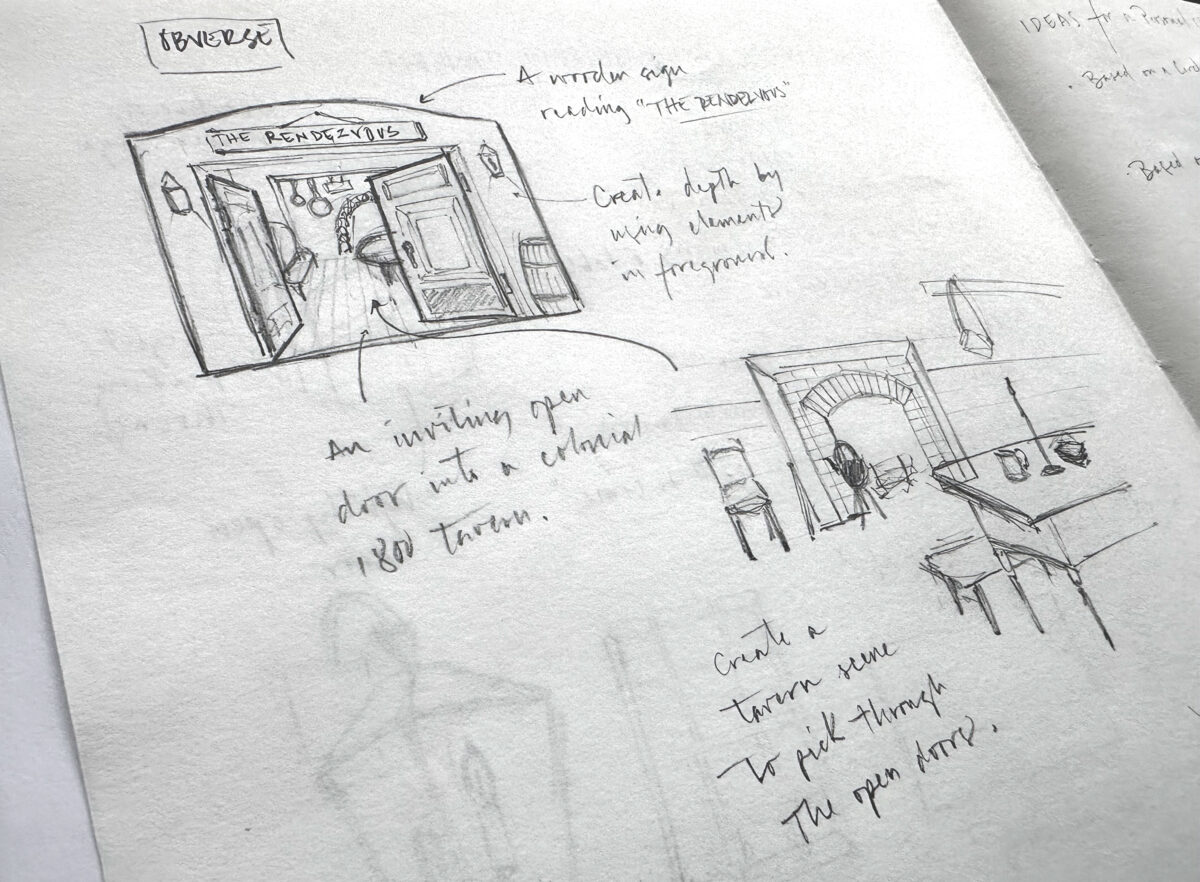 OBVERSE
A wooden sign
reading "THE RENDEZVOUS"
THE RENDEZVOUS
Create depth by
using elements
in foreground.
An inviting open
door into a colonial
1800 tavern.
Create a
tavern scene
to pick through
The open doors.
IDEAS for a Personal
. Based on a
. Based